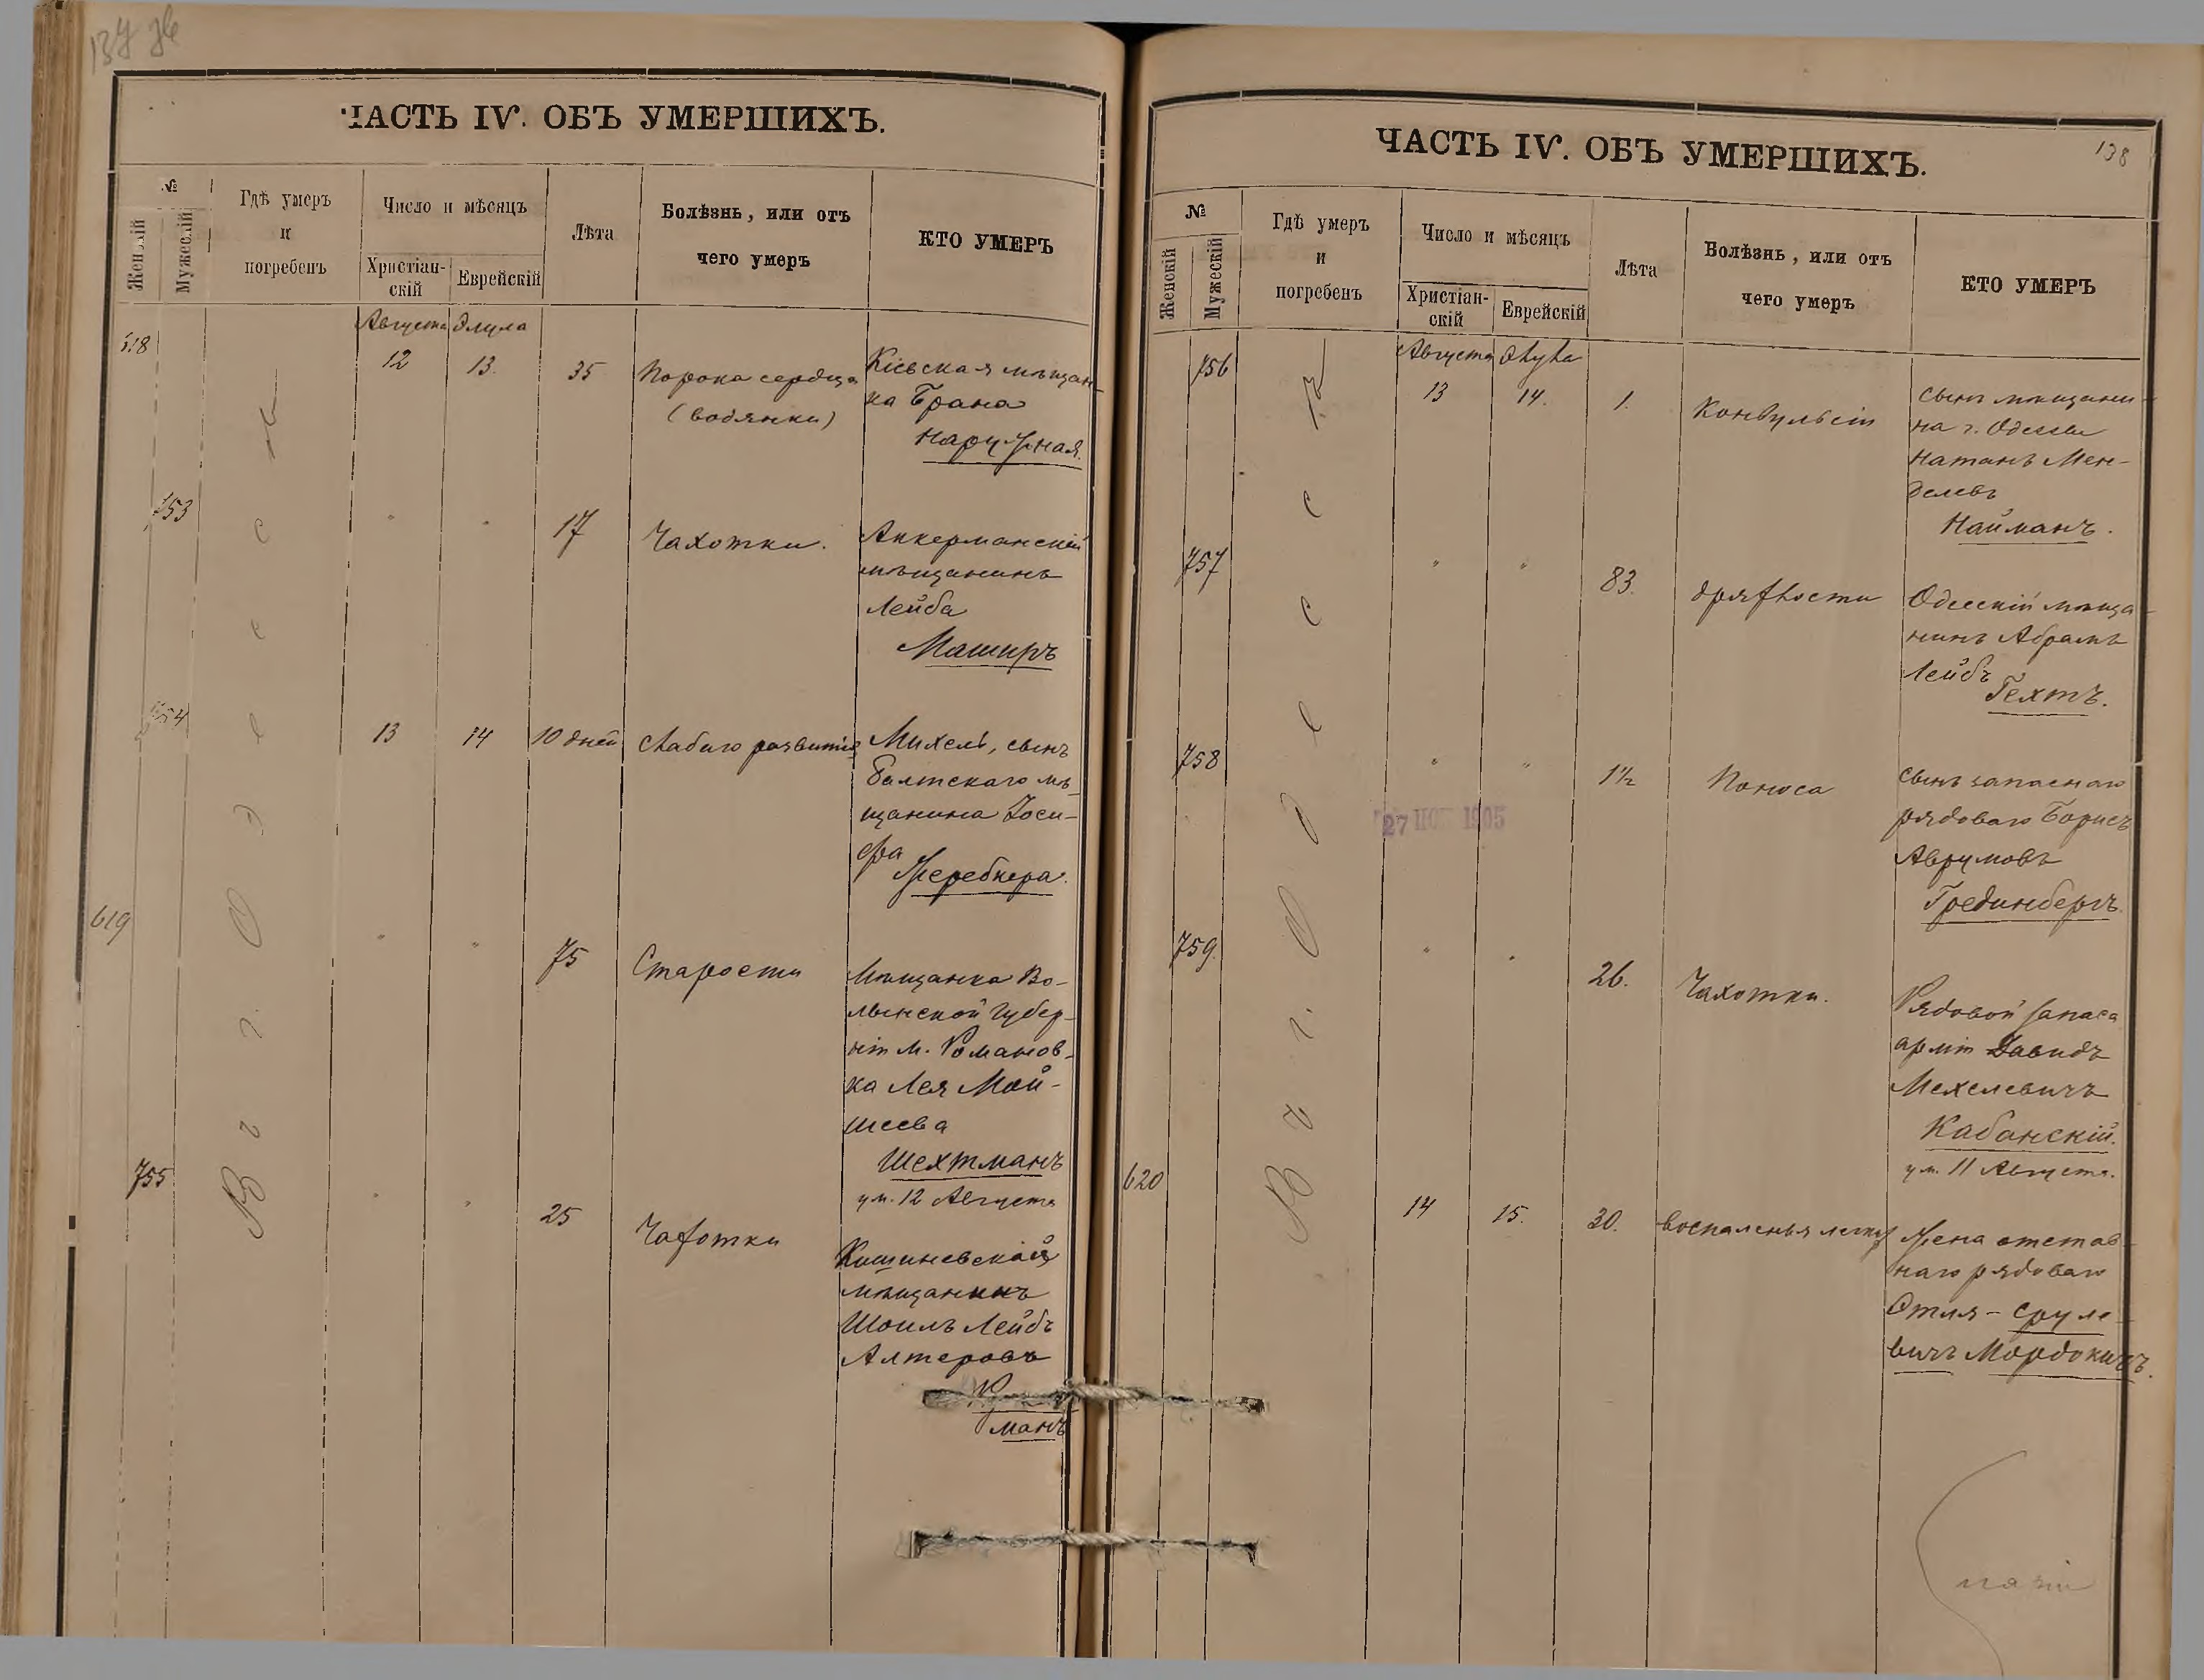 ЧАСТЬ IV. ОБЪ УМЕРШИХЪ.
№
Женскій
Мужескій
Гдѣ умеръ
и
погребенъ
Число и мѣсяцъ
Христіан-
скій
Еврейскій
Лѣта
Болѣзнь, или отъ
чего умеръ
КТО УМЕРЪ
Въ г. Одессѣ
Августа Элула
618
12 13. 35 Порока сердца
(водянки)
Кіевская мѣщан-
ка Брана
Наружная.
753
" " 17 Чахотки.
Аккерманскій
мѣщанинъ
Лейба
Маширъ
754
13 14 10 дней слабаго развитія
Михель, сынъ
Балтскаго мѣ-
щанина Іоси-
фа
Жеребкера.
619
" " 75 Старости
Мѣщанка Во-
лынской Губер-
ніи м. Романов-
ка Лея Мой-
шеева
Шехтманъ
ум. 12 Августа
755
" " 25 Чахотки
Кишиневскій
мѣщанинъ
Шоилъ Лейбъ
Алтеровъ
манъ
ЧАСТЬ IV. ОБЪ УМЕРШИХЪ.
138
№
Женскій
Мужескій
Гдѣ умеръ
и
погребенъ
Число и мѣсяцъ
Христіан-
скій
Еврейскій
Лѣта
Болѣзнь, или отъ
чего умеръ
КТО УМЕРЪ
Въ г. Одессѣ
Августа Элула
756
13 14. 1. Конвульсіи
сынъ мѣщани-
на г. Одессы
Натанъ Мен-
делевъ
Найманъ.
757
" " 83. дряхлости
Одесскій мѣща-
нинъ Абрамъ
Лейбъ
Гехтъ.
758
" " 1½ Поноса
сынъ запаснаго
рядоваго Борисъ
Аврумовъ
Грединбергъ.
27 1905
759.
" " 26. Чахотки.
Рядовой запаса
арміи Давидъ
Мехелевичъ
Кабанскій.
ум. 11 Августа.
620
14 15. 30. воспаленья легкихъ
Жена отстав-
наго рядоваго
Отля - Сруле-
вичъ Мордокичъ.